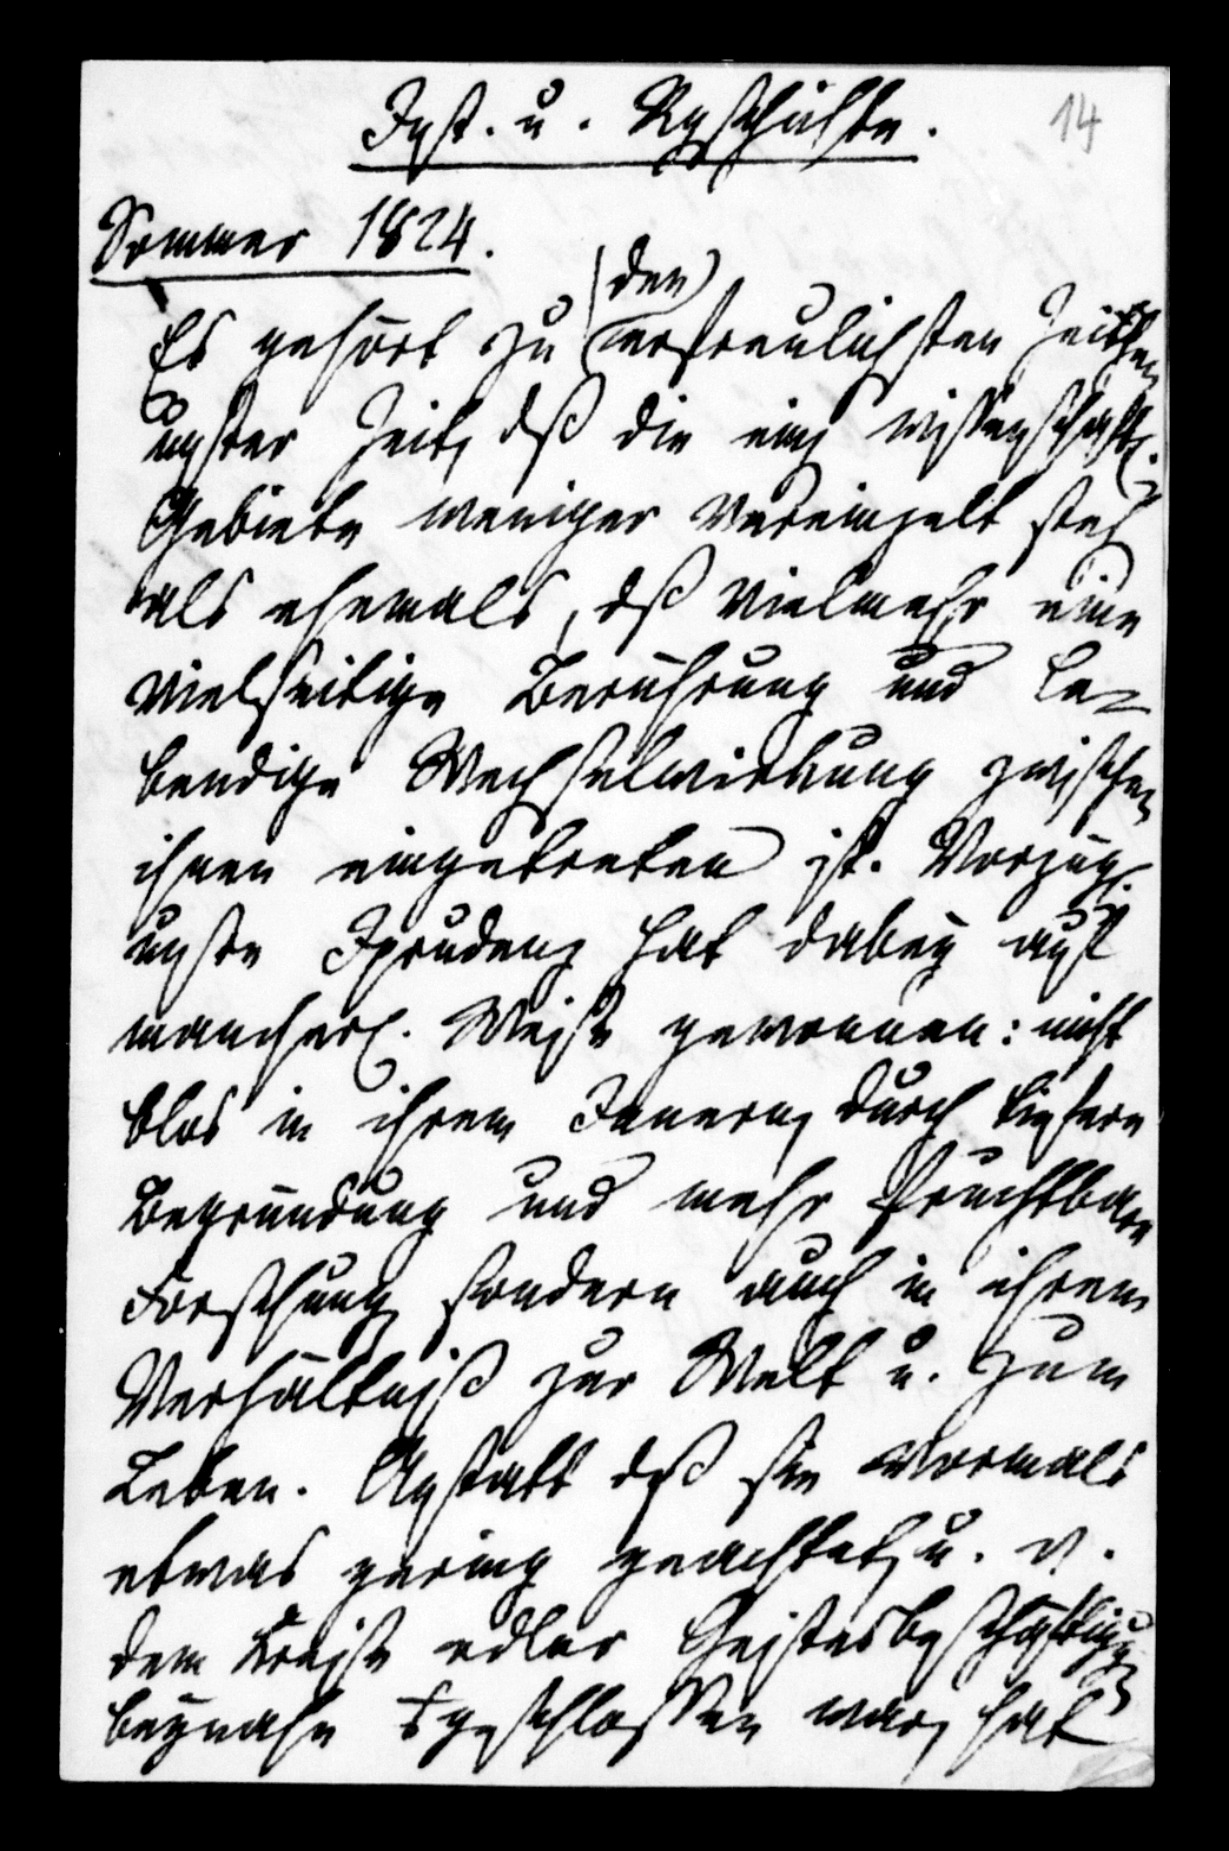 Inst. u. Rgschichte.
14
Sommer 1824.
(den)
Es gehört zu erfreulichsten Zeichen
unsrer Zeit, dß die einz wissenschaftl.
Gebiete weniger vereinzelt steh
als ehemals, dß vielmehr eine
vielseitige Berührung und le-
bendige Wechselwirkung zwischen
ihnen eingetreten ist. Vorzügl.
unsre Jprudenz hat dabey auf
mancherl. Weise gewonnen: nicht
blos in ihrem Innern, durch tiefere
Begründung und mehr fruchtbare
Forschung, sondern auch in ihrem
Verhältniß zur Welt u. zum
Leben. Anstatt dß sie vormals
etwas gering geachtet, u. v.
dem Kreise edler Geistesbeschäftigg
beynahe geschlossen war, hat